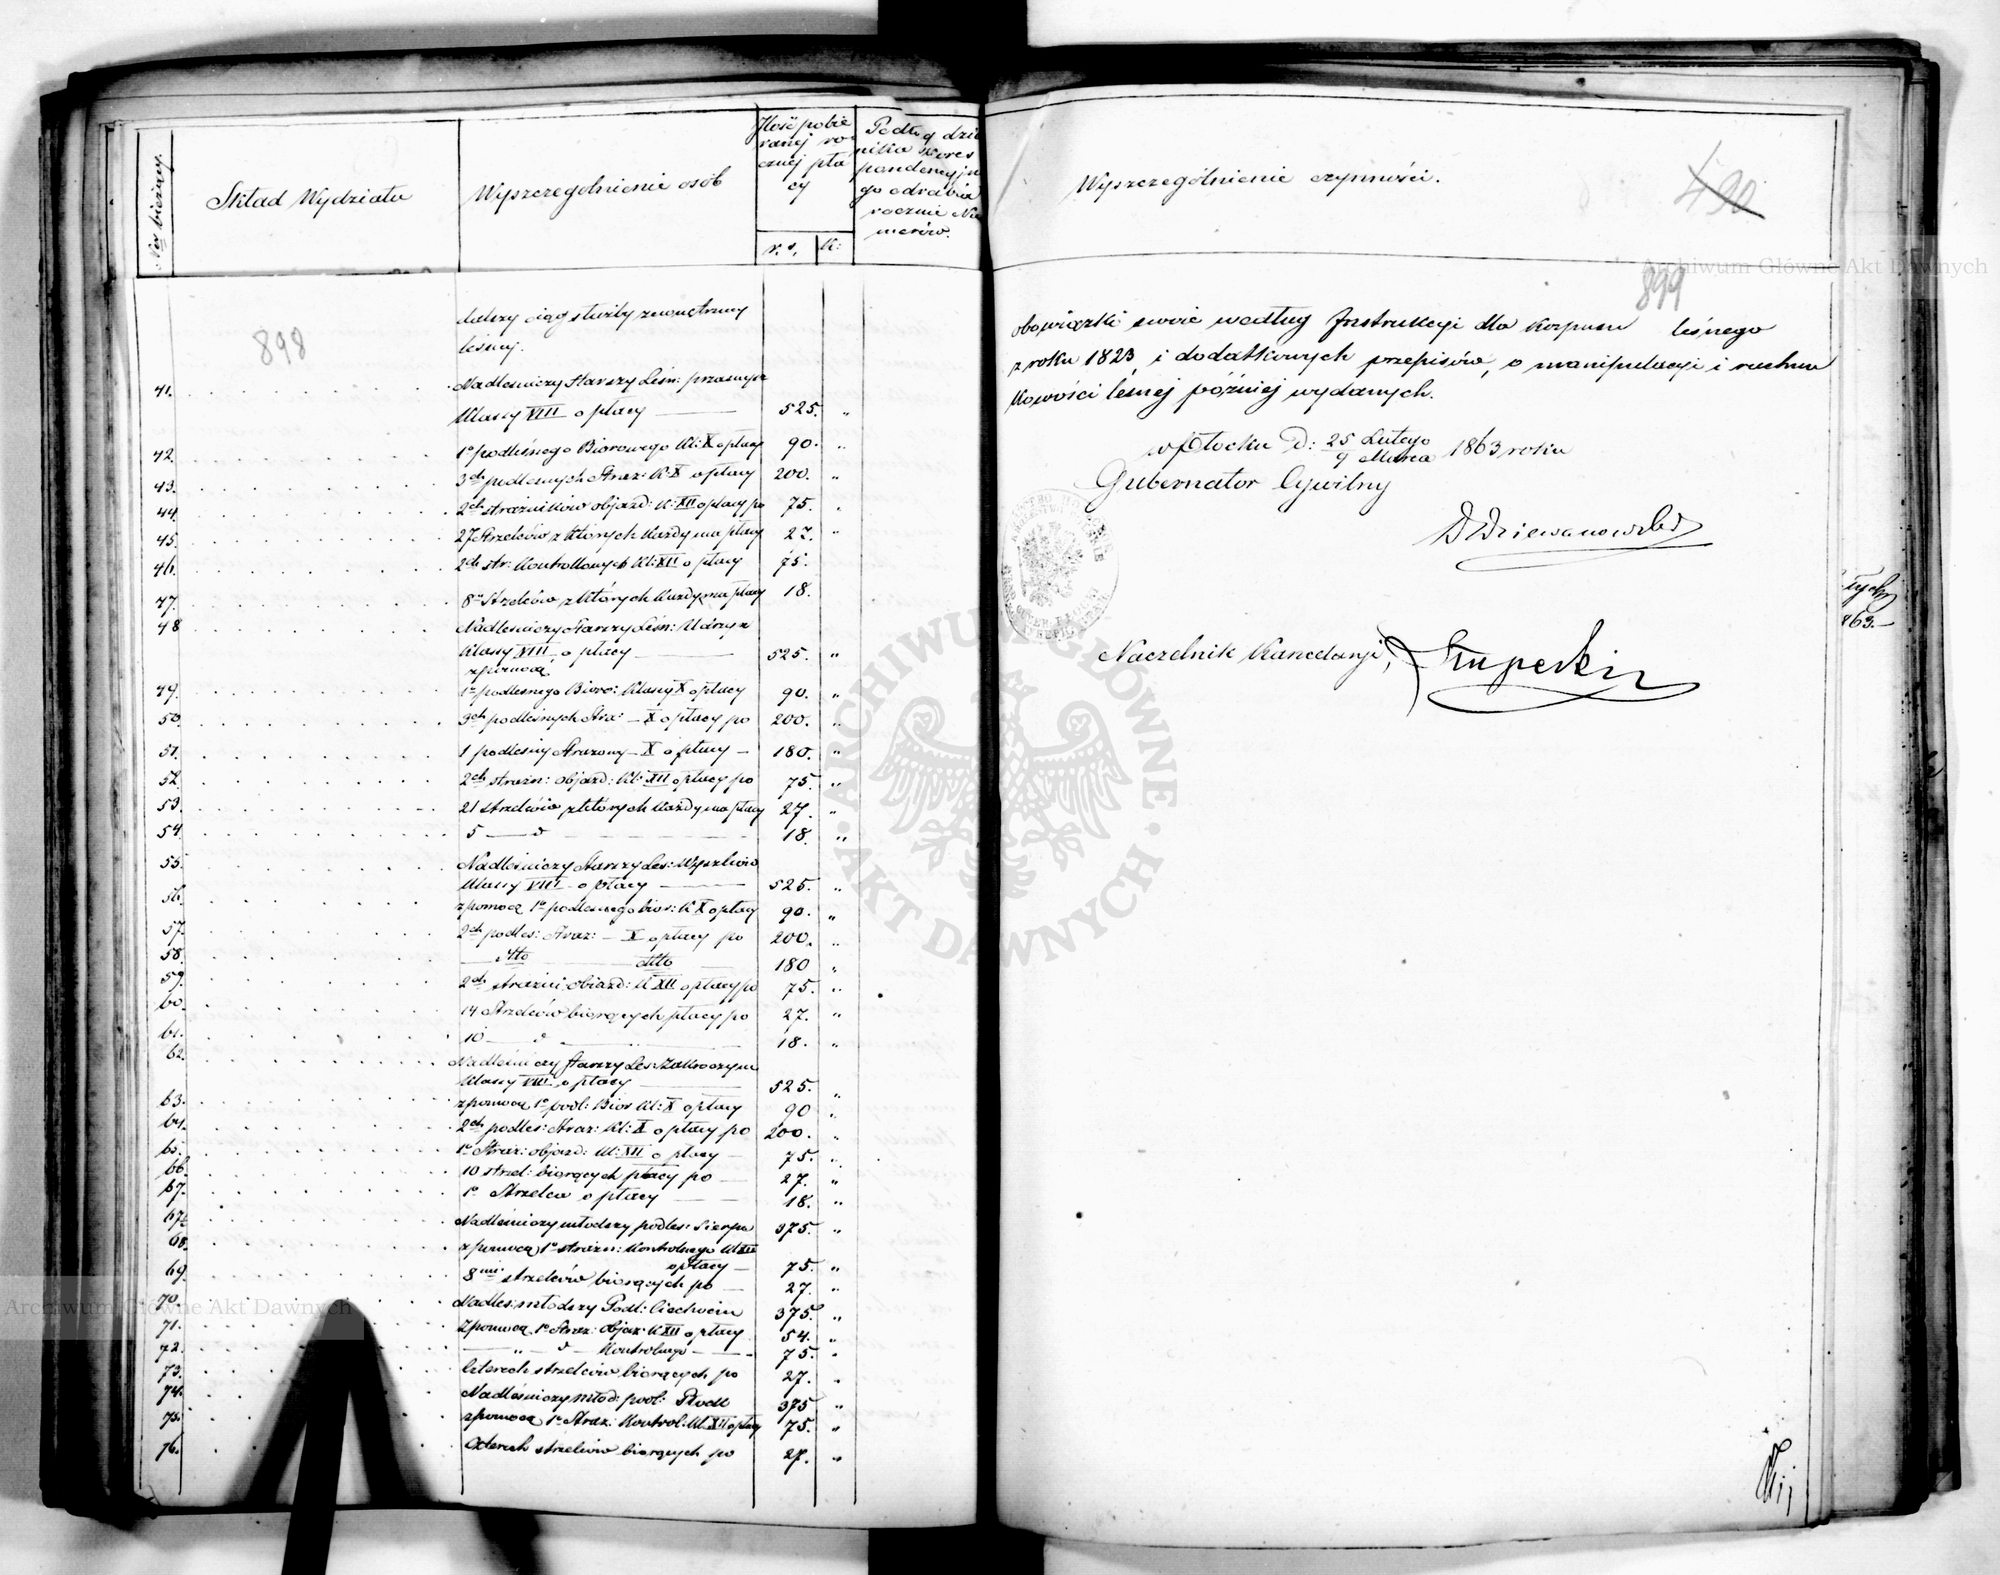 Nro bieżący.
Skład Wydziału
Wyszczególnienie osób
Ilość pobie
ranej ro
cznej pła
cy
r. s.
k:
Podług dzie
nnika kores
pondencyjne
go odrabia
rocznie Nu
merów.
898
dalszy ciąg służby zewnętrznej
leśnej.
41. Nadleśniczy Starszy Leśn: przasnysz
Klassy VIII o płacy 525. "
42. 1o podleśnego Biorowego Kl: X o płacy 90. "
43. 3ch podleśnych Straż: K: X o płacy 200. "
44. 2ch strażników objazd: K: XII o płacy po 75. "
45. 27 Strzelców z których każdy ma płacy 27. "
46. 2ch str: kontrolowych Kl: XII o płacy 75.
47. 8u Strzelców z których każdy ma płacy 18.
48 Nadleśniczy Starszy Leśn:
Klassy VIII o płacy 525. "
z pomocą
49. 1o podleśnego Bioro: Klassy X o płacy 90. "
50. 3ch podleśnych Straż: — X o płacy po 200. "
51. 1 podleśny Strażowy — X o płacy — 180. "
52. 2ch strażn: objazd: Kl: XII o płacy po 75. "
53. 21 strzelców z których każdy ma płacy 27. "
54. 5 — d — 18. "
55. Nadleśniczy Starszy Leś: Wyszków
Klassy VIII o płacy 525. "
56. z pomocą 1o podleśnego bior: K X o płacy 90. "
57. 2ch podleś: Straż: — X o płacy po 200. "
58. — dtto — dtto — 180 "
59. 2ch strażni: objazd: K XII o płacy po 75. "
60. 14 Strzelców biorących płacy po 27. "
61. 10 — d — 18. "
62. Nadleśniczy starszy Leś: Zakroczym
Klassy VIII o płacy 525. "
63. z pomocą 1o podl: Bior Kl: X o płacy 90 "
64. 2ch podleś: Straż: Kl: X o płacy po 200. "
65. 1o Straż: objazd: Kl: XII o płacy — 75. "
66. 10 strzel: biorących płacy po — 27. "
67. 1o Strzelca o płacy — 18. "
67. Nadleśniczy młodszy podleś: Sierpc 375. "
68. z pomocą 1o strażn: Kontrolnego Kl XII
o płacy — 75. "
69. 8miu strzelców biorących po — 27. "
70. Nadleś: młodszy Podl: Ciechocin 375. "
71. z pomocą 1o Straż: Objaz: K XII o płacy 54. "
72. — " — d — Kontrolnego — 75. "
73. czterech strzelców biorących po 27. "
74. Nadleśniczy młod: podl: Płock 375 "
75. z pomocą 1o Straż: Kontrol: Kl: XII o płacy 75. "
76. Czterech strzelców biorących po 27. "
Wyszczególnienie czynności.
490
899
obowiązki swoie według Instrukcyi dla Korpusu leśnego
z roku 1823, i dodatkowych przepisów, o manipulacyi i rachun
kowości leśnej później wydanych.
w Płocku D: 25 Lutego / 9 Marca 1863 roku
Gubernator Cywilny
D Dziewanowski
Naczelnik Kancelaryi,
Słupecki
863.—
Archiwum Główne Akt Dawnych
ARCHIWUM GŁÓWNE · AKT DAWNYCH ·
Archiwum Główne Akt Dawnych